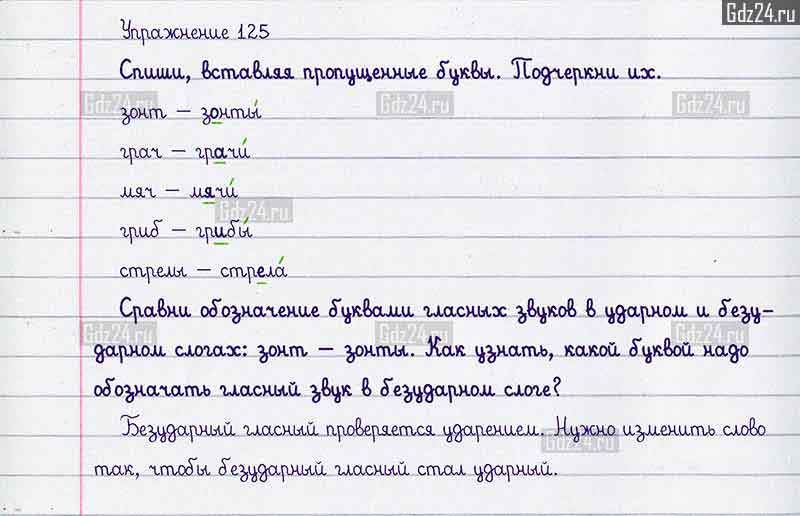 Gdz24.ru
Упражнение 125
Спиши, вставляя пропущенные буквы. Подчеркни их.
Gdz24.ru Gdz24.ru Gdz24.ru
зонт – зонты́
грач – грачи́
мяч – мячи́
Gdz24.ru
гриб – грибы́
стрелы – стрела́
Сравни обозначение буквами гласных звуков в ударном и безу-
Gdz24.ru Gdz24.ru Gdz24.ru
дарном слогах: зонт – зонты. Как узнать, какой буквой надо
обозначать гласный звук в безударном слоге?
Безударный гласный проверяется ударением. Нужно изменить слово
Gdz24.ru Gdz24.ru
так, чтобы безударный гласный стал ударный.